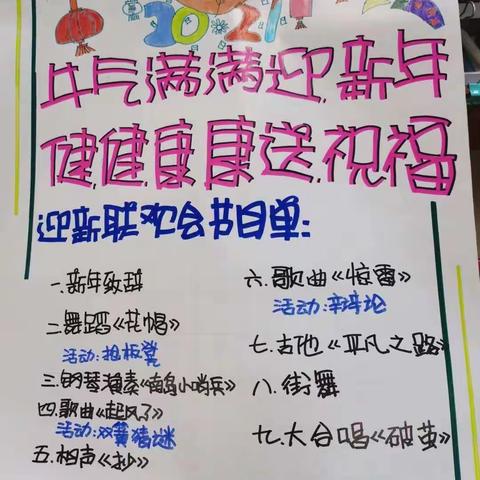 2021
牛气满满迎新年
健健康康送祝福
迎新联欢会节目单:
一.新年致辞
二.舞蹈《花帽》
活动:抢板凳
三.钢琴演奏《南岛小哨兵》
四.歌曲《起风了》
活动:双簧猜谜
五.相声《抄》
六.歌曲《惊雷》
活动:辩论
七.吉他《平凡之路》
八.街舞
九.大合唱《破茧》